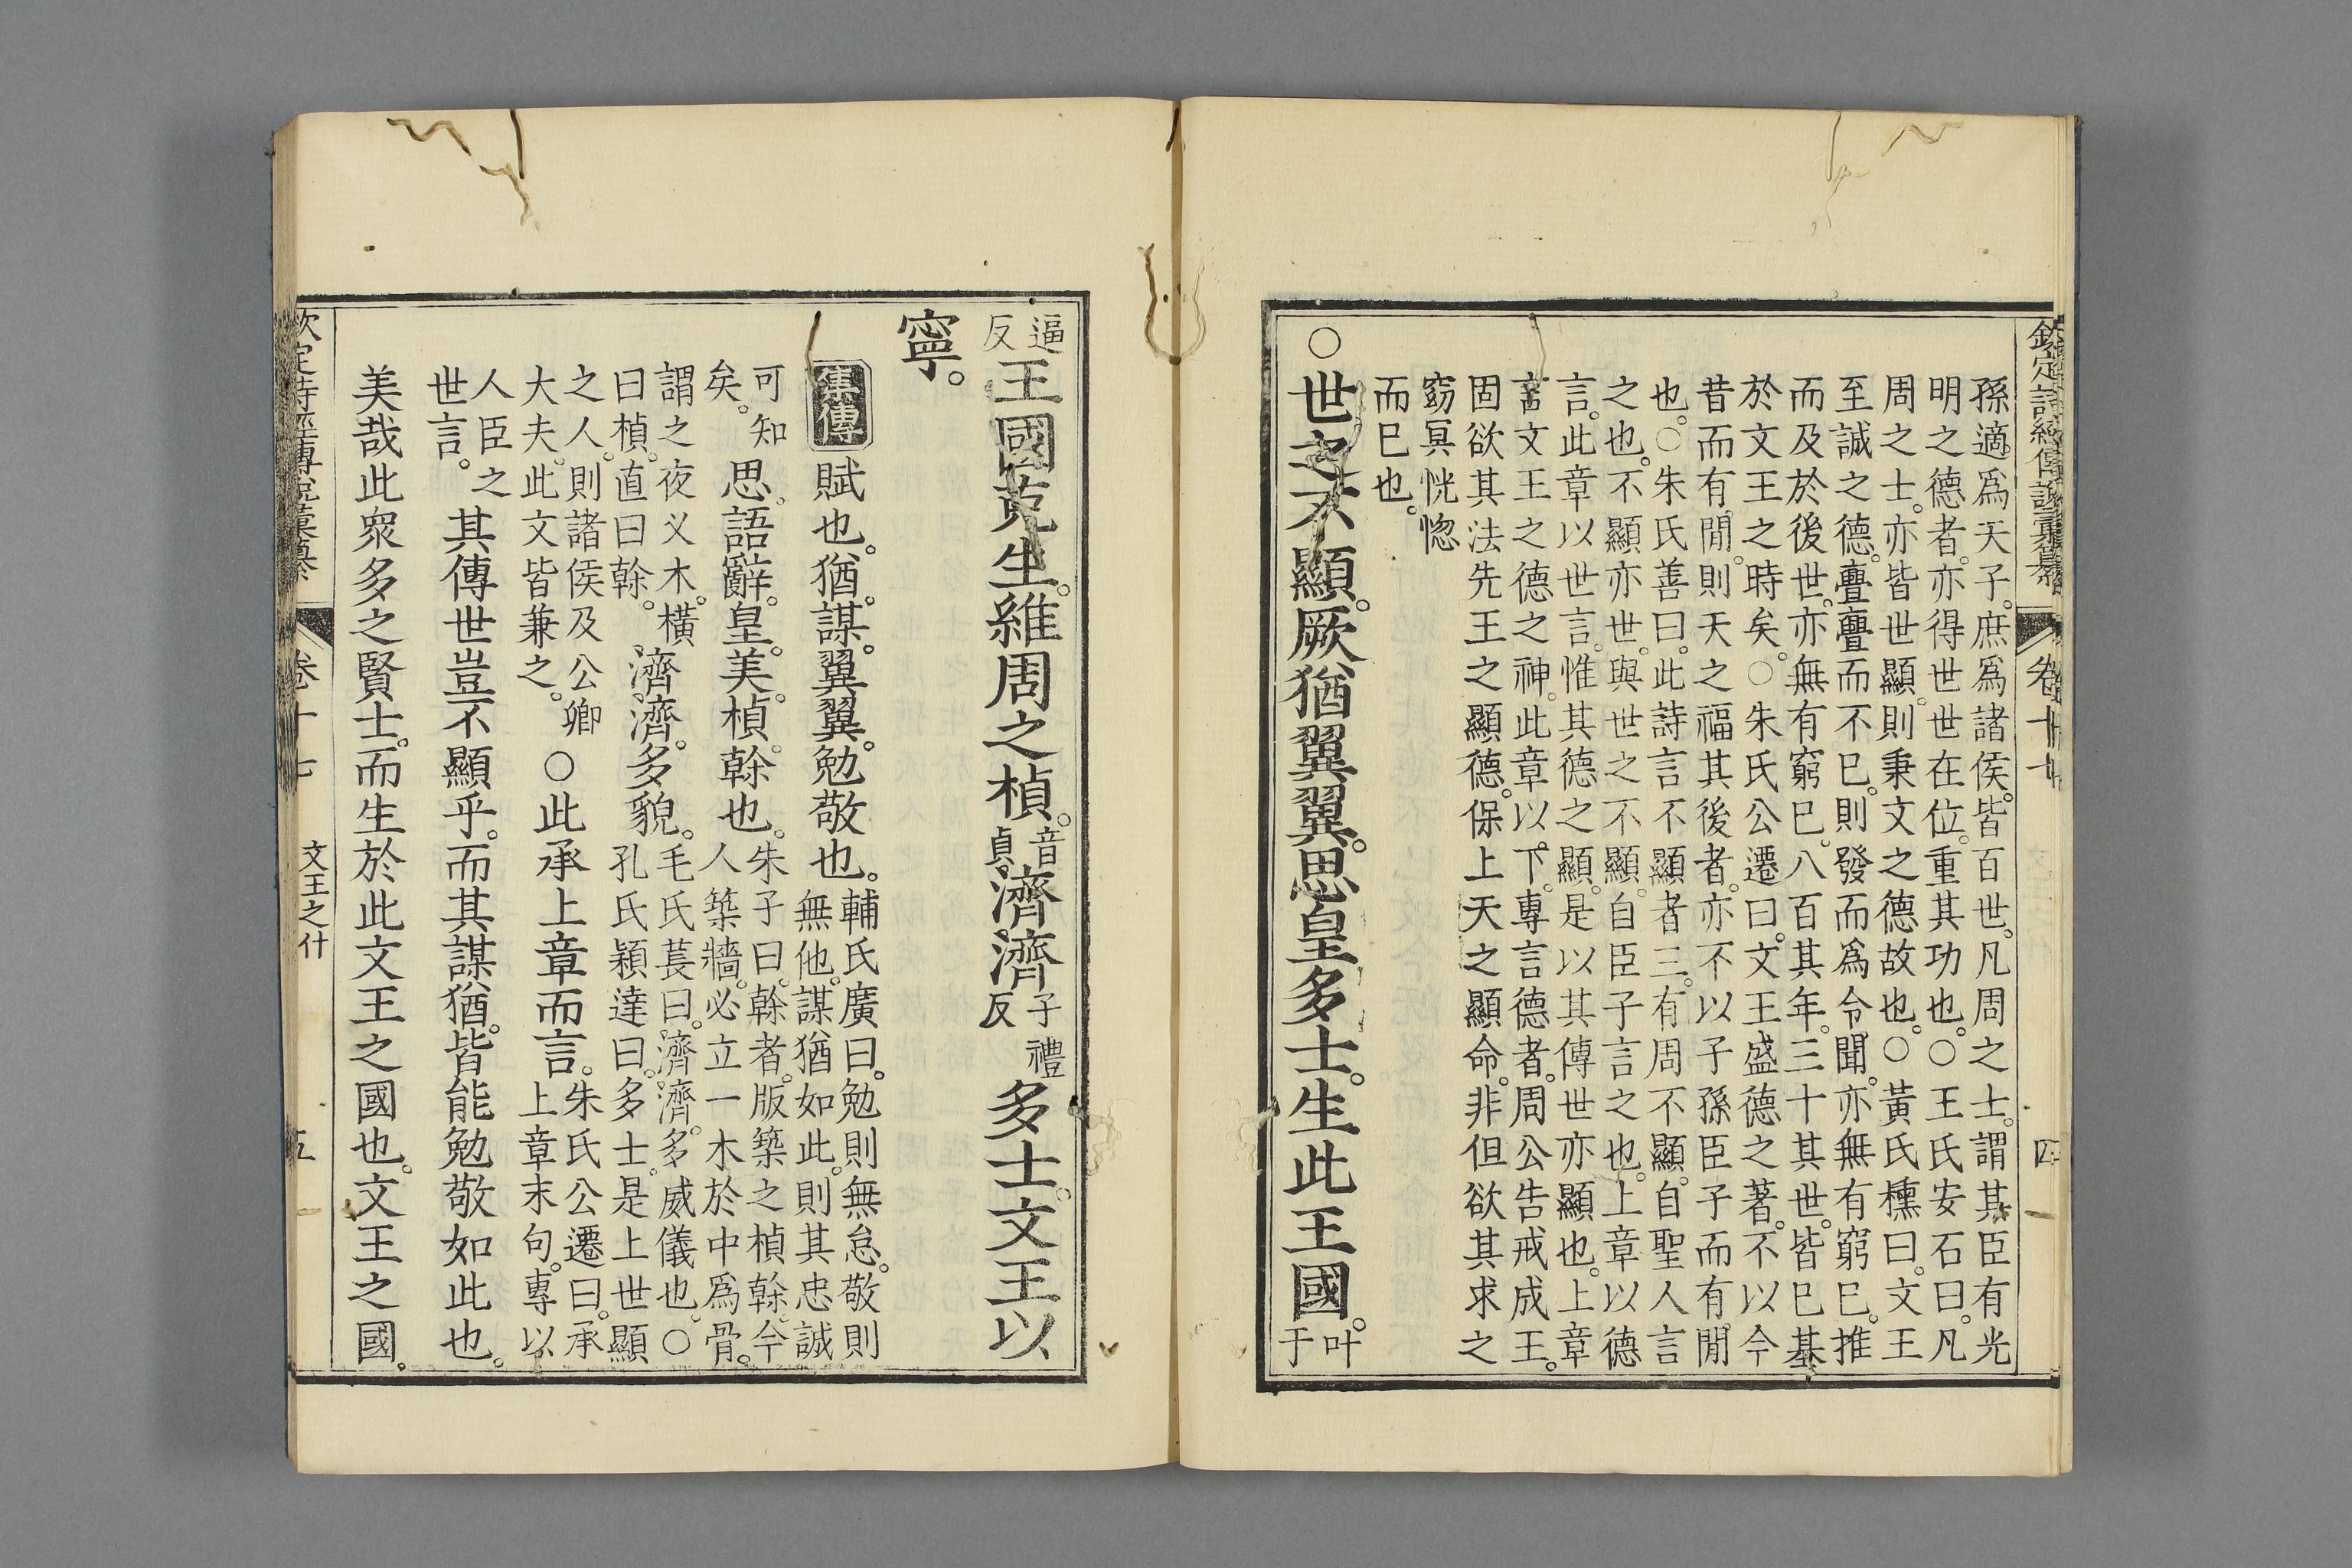 欽定詩經傳說彙纂 卷十七 四
孫適爲天子庶爲諸侯皆百世凡周之士謂其臣有光
明之德者亦得世世在位重其功也○王氏安石曰凡
周之士亦皆世顯則秉文之德故也○黃氏櫄曰文王
至誠之德亹亹而不已則發而爲令聞亦無有窮已推
而及於後世亦無有窮已八百其年三十其世皆已基
於文王之時矣○朱氏公遷曰文王盛德之著不以今
昔而有閒則天之福其後者亦不以子孫臣子而有閒
也○朱氏善曰此詩言不顯者三有周不顯自聖人言
之也不顯亦世與世之不顯自臣子言之也上章以德
言此章以世言惟其德之顯是以其傳世亦顯也上章
言文王之德之神此章以下專言德者周公告戒成王
固欲其法先王之顯德保上天之顯命非但欲其求之
窈冥恍惚
而已也
○世之不顯厥猶翼翼思皇多士生此王國叶于
逼反王國克生維周之楨音貞濟濟子禮反多士文王以
寧
集傳賦也猶謀翼翼勉敬也輔氏廣曰勉則無怠敬則
無他謀猶如此則其忠誠
可知
矣思語辭皇美楨榦也朱子曰榦者版築之楨榦今
人築牆必立一木於中爲骨
謂之夜义木橫
曰楨直曰榦濟濟多貌毛氏萇曰濟濟多威儀也○
孔氏穎達曰多士是上世顯
之人則諸侯及公卿
大夫此文皆兼之○此承上章而言朱氏公遷曰承
上章末句專以
人臣之
世言其傳世豈不顯乎而其謀猶皆能勉敬如此也
美哉此衆多之賢士而生於此文王之國也文王之國
欽定詩經傳說彙纂 卷十七 文王之什 五